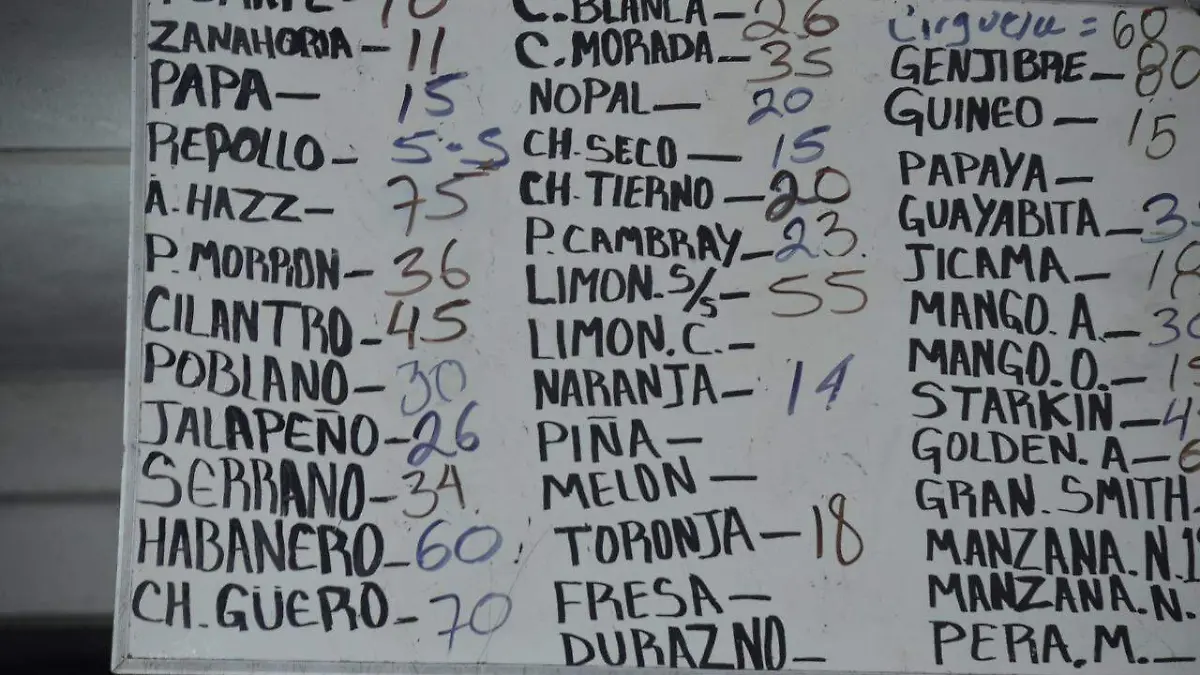 10
ZANAHORIA - 11
PAPA - 15
REPOLLO - 5.5
A. HAZZ - 75
P. MORRON - 36
CILANTRO - 45
POBLANO - 30
JALAPEÑO - 26
SERRANO - 34
HABANERO - 60
CH. GÜERO - 70
C. BLANCA - 26
C. MORADA - 35
NOPAL - 20
CH. SECO - 15
CH. TIERNO - 20
P. CAMBRAY - 23
LIMON. S/S - 55
LIMON. C. -
NARANJA - 14
PIÑA -
MELON -
TORONJA - 18
FRESA -
DURAZNO -
Cirguela = 60
GENJIBRE - 80
GUINEO - 15
PAPAYA -
GUAYABITA - 3
JICAMA - 18
MANGO. A. - 30
MANGO. O. - 1
STARKIN - 4
GOLDEN. A -
GRAN. SMITH
MANZANA. N. 1
MANZANA. N.
PERA. M. -